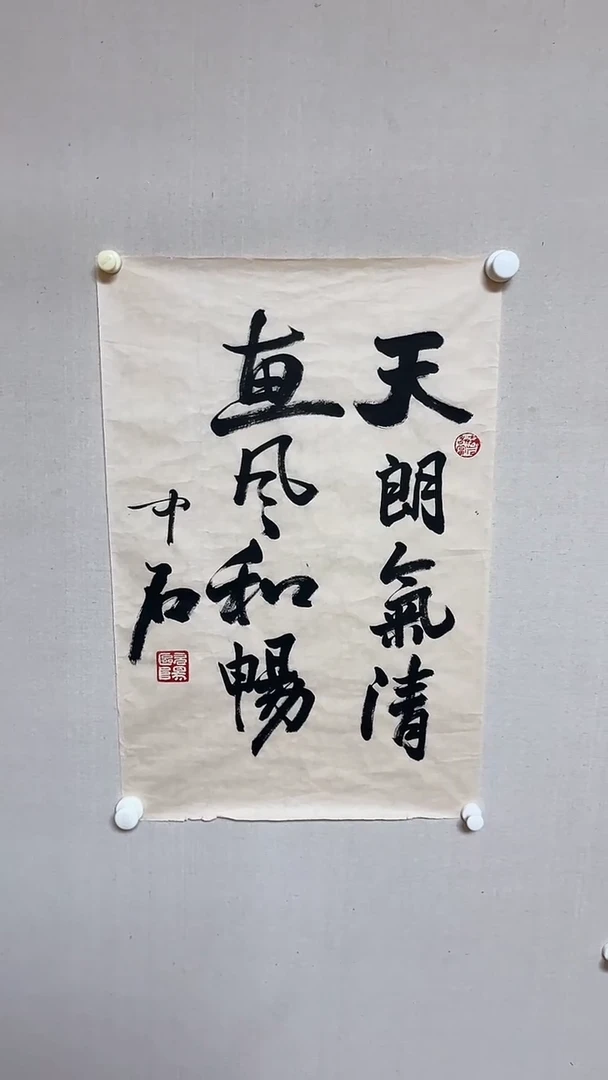 天朗氣清
惠风和暢
中石